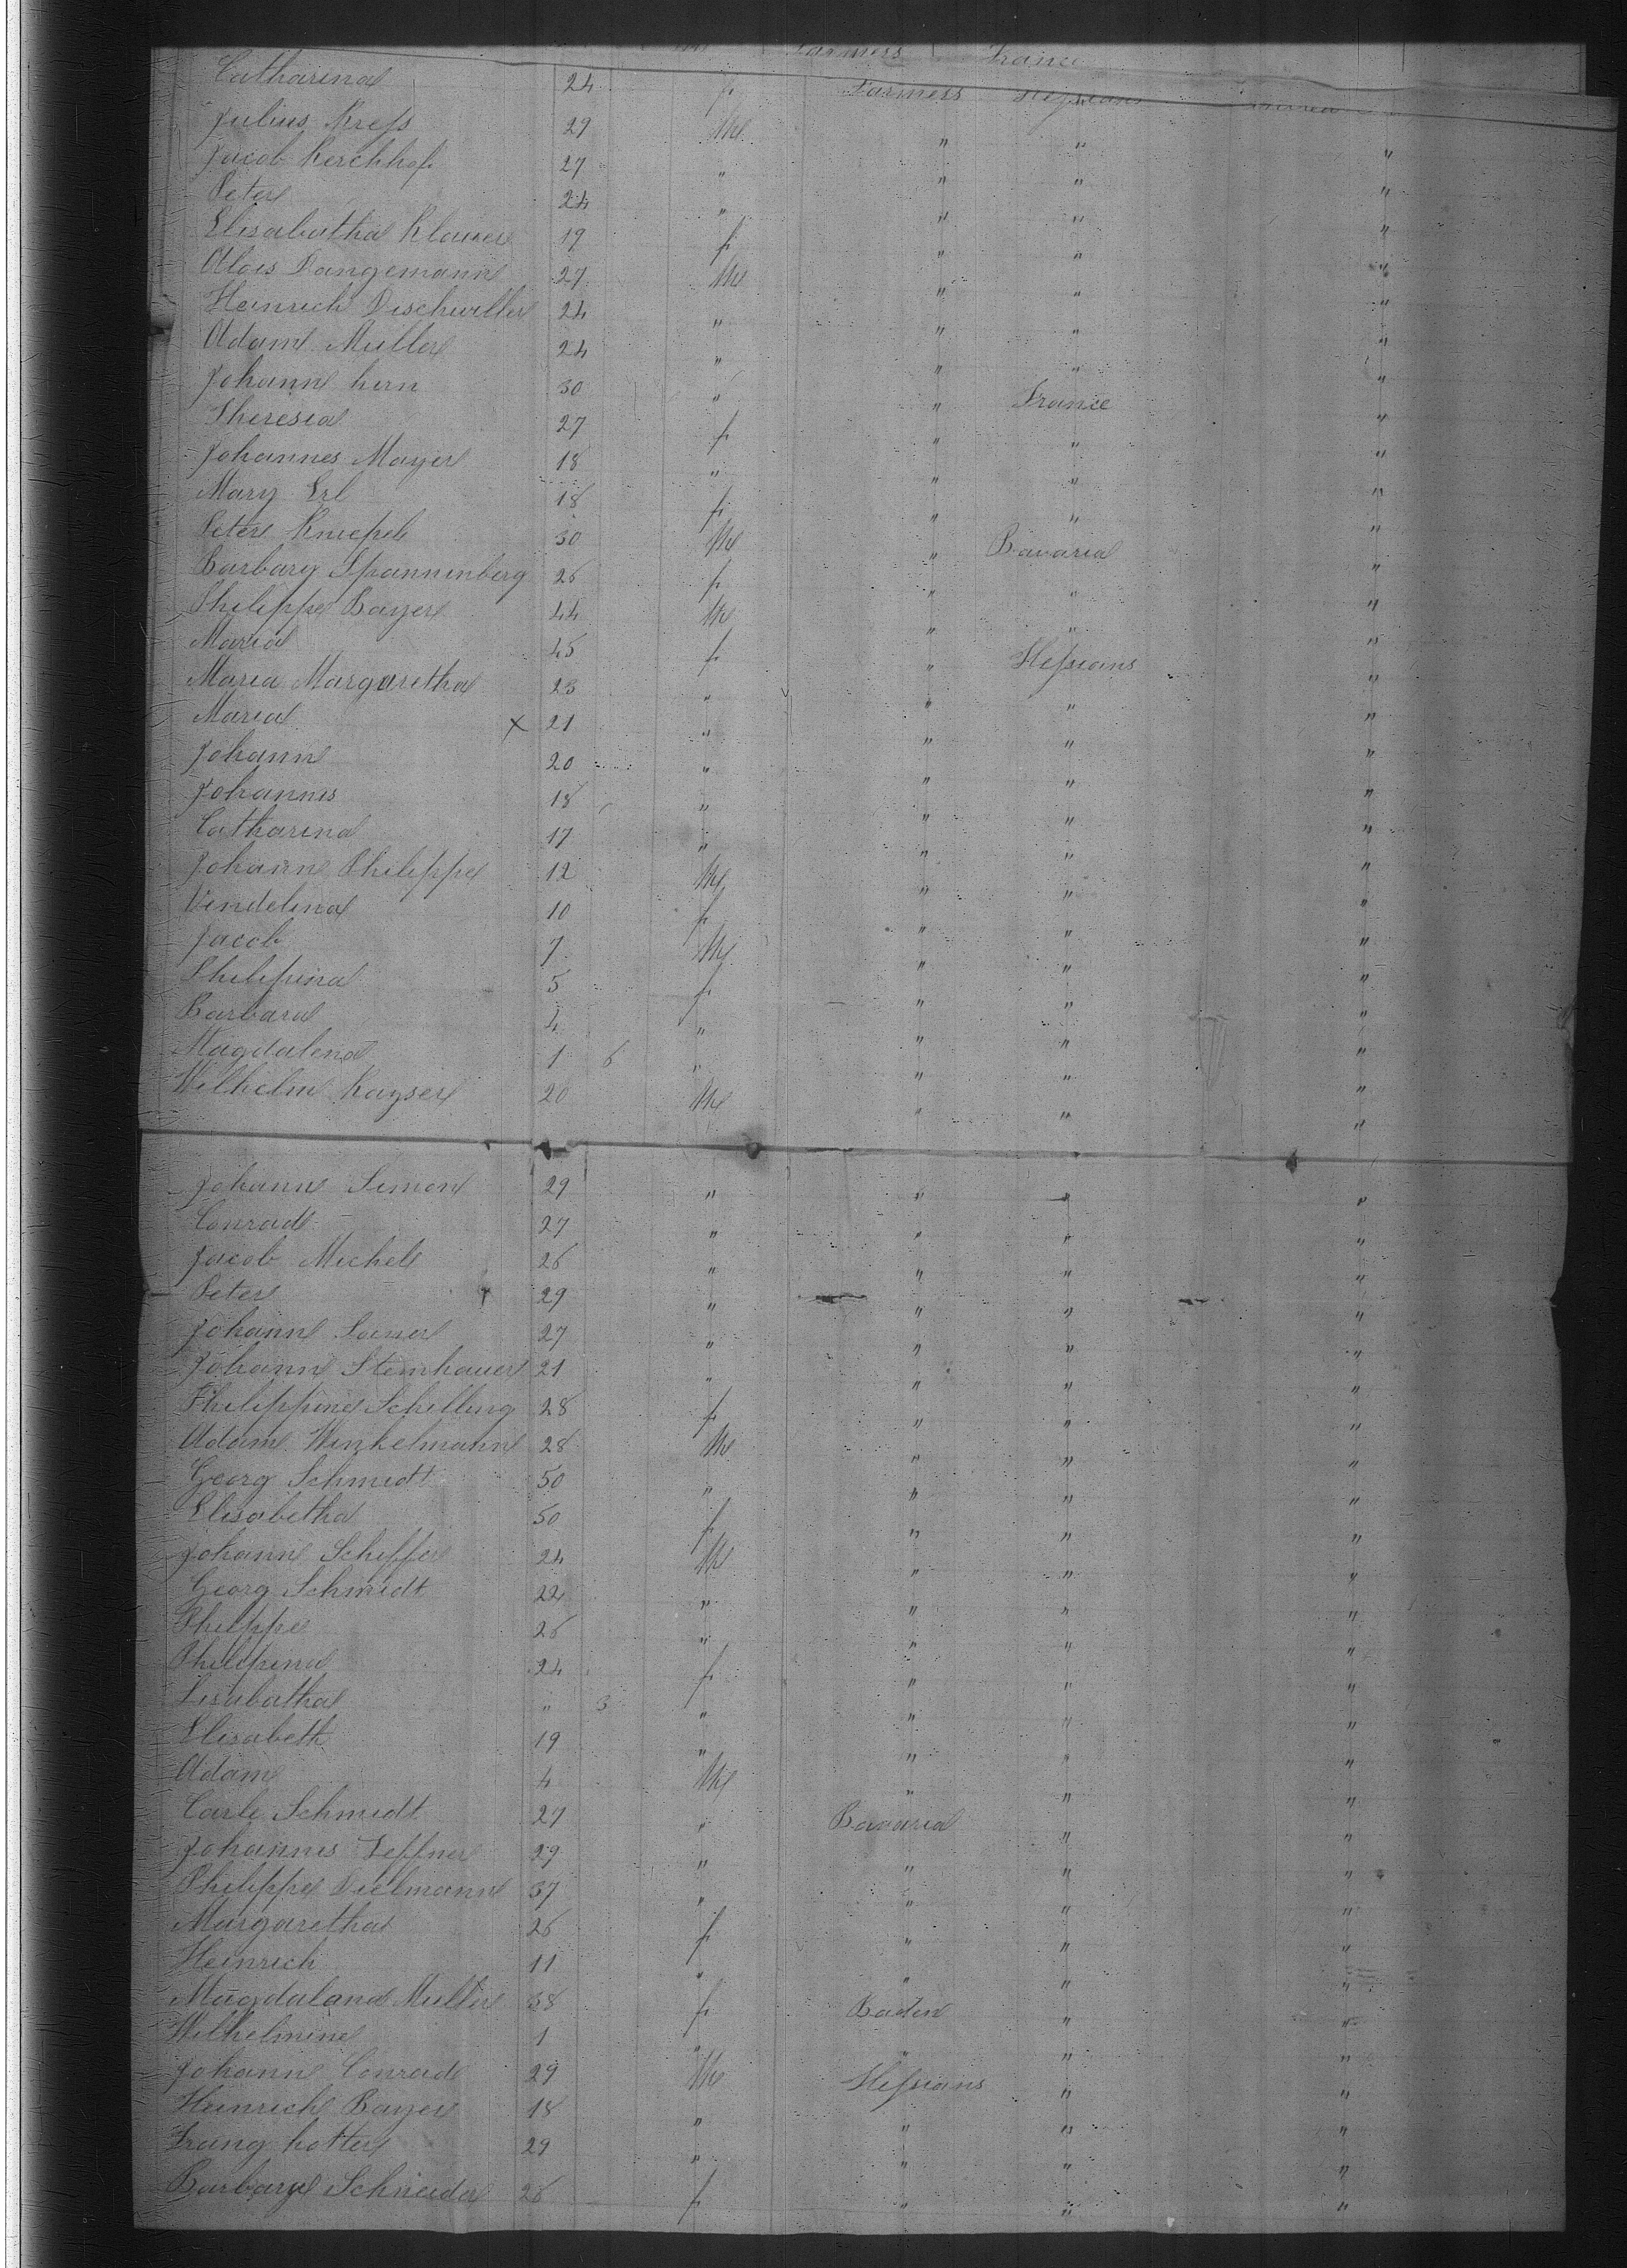 Farmers France
Catharina 24 f Farmers Hessians
Julius Kress 29 M " " "
Jacob Kerchhof 27 " " " "
Peter 24 " " " "
Elisabatha Klauer 19 f " " "
Alois Dangemann 27 M " " "
Heinrich Dischwiller 24 " " " "
Adam Muller 24 " " " "
Johann hern 30 " " France "
Theresia 27 f " " "
Johannes Mayer 18 " " " "
Mary Erl 18 f " " "
Peter Kniepel 30 M " Bavaria "
Barbary Spannenberg 26 f " " "
Philippe Bayer 44 M " " "
Maria 45 f " Hessians "
Maria Margaretha 23 " " " "
Maria x 21 " " " "
Johann 20 " " " "
Johannis 18 " " " "
Catharina 17 " " " "
Johann Philippe 12 M " " "
Vendelina 10 f " " "
Jacob 7 M " " "
Philipina 5 f " " "
Barbara 4 " " " "
Magdalena 1 6 " " " "
Wilhelm Kayser 20 M " " "
Johann Simon 29 " " " "
Conrad 27 " " " "
Jacob Michel 26 " " " "
Peter 29 " " " "
Johann 27 " " " "
Johann Steinhauer 21 " " " "
Philippine Schilling 28 f " " "
Adam Winkelmann 28 M " " "
Georg Schmidt 50 " " " "
Elisabetha 50 f " " "
Johann Scheffer 24 M " " "
Georg Schmidt 22 " " " "
Philppe 26 " " " "
Philipina 24 f " " "
Lisabatha " 3 " " " "
Elisabeth 19 " " " "
Adam 4 M " " "
Carle Schmidt 27 " Bavaria " "
Johannis Leffner 29 " " " "
Philippe Dielmann 37 " " " "
Margaretha 26 f " " "
Heinrich 11 " " " "
Magdalana Muller 38 f Baden " "
Wilhelmine 1 " " " "
Johann Conrad 29 M Hessians " "
Heinrich Bayer 18 " " " "
Frang hotter 29 " " " "
Barbary Schneider 26 f " " "